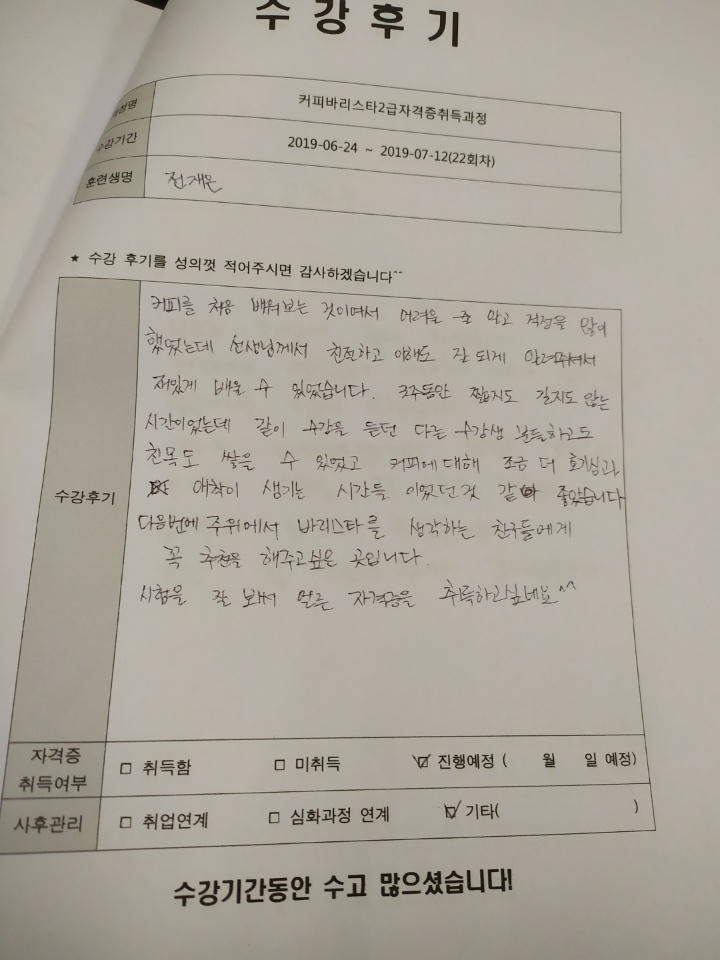 수 강 후 기
과정명 커피바리스타2급자격증취득과정
수강기간 2019-06-24 ~ 2019-07-12(22회차)
훈련생명 전재은
★ 수강 후기를 성의껏 적어주시면 감사하겠습니다^^
수강후기
커피를 처음 배워보는 것이여서 어려울 줄 알고 걱정을 많이
했었는데 선생님께서 친절하고 이해도 잘 되게 알려주셔서
재밌게 배울 수 있었습니다. 3주동안 짧지도 길지도 않는
시간이었는데 같이 수강을 듣던 다른 수강생 분들하고도
친목도 쌓을 수 있었고 커피에 대해 조금 더 호기심과
애착이 생기는 시간들 이었던것 같아 좋았습니다
다음번에 주위에서 바리스타를 생각하는 친구들에게
꼭 추천을 해주고싶은 곳입니다.
시험을 잘 봐서 얼른 자격증을 취득하고싶네요^^
자격증 취득여부 □ 취득함 □ 미취득 ☑ 진행예정 ( 월 일 예정)
사후관리 □ 취업연계 □ 심화과정 연계 ☑ 기타( )
수강기간동안 수고 많으셨습니다!